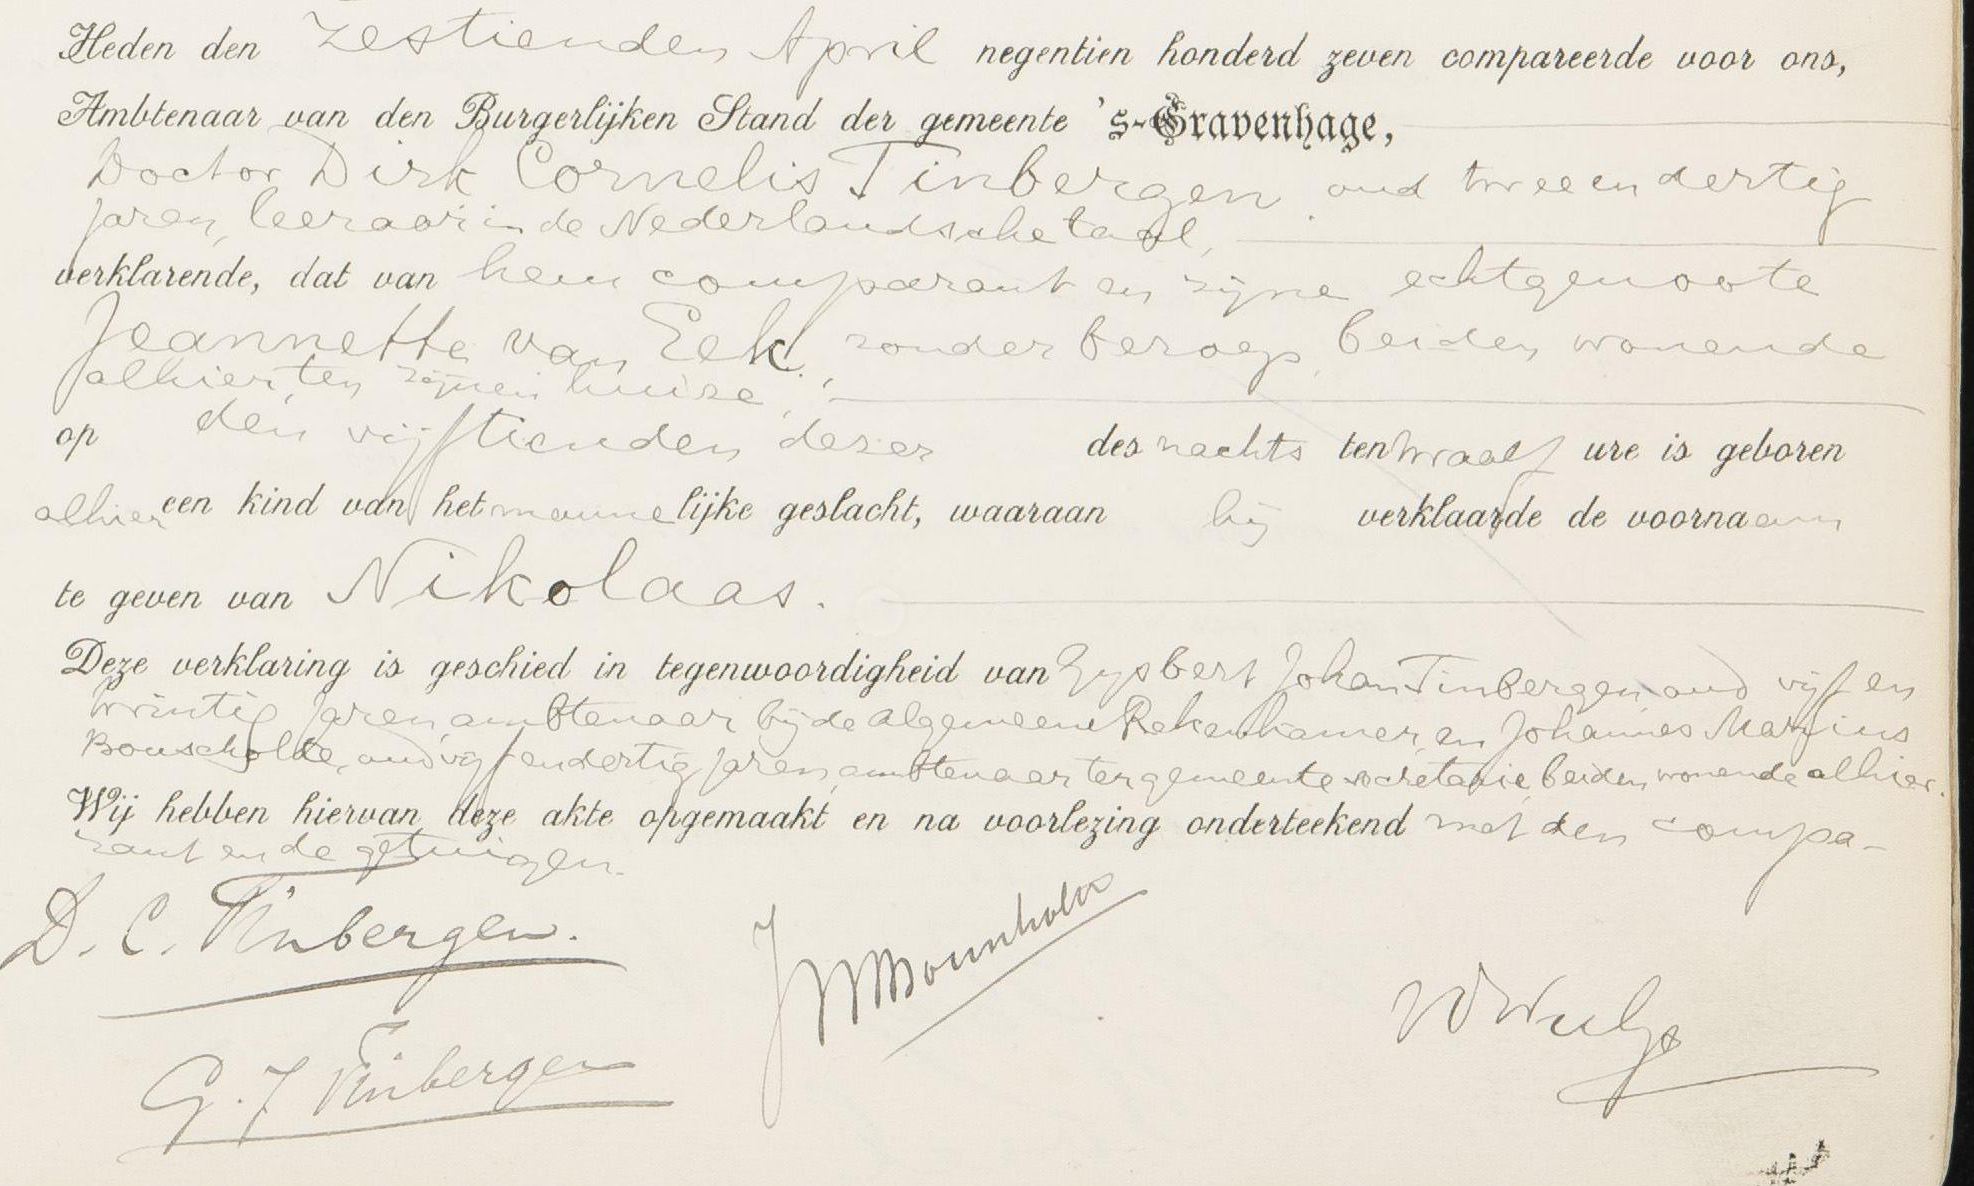 Heden den zestienden April negentien honderd zeven compareerde voor ons,
Ambtenaar van den Burgerlijken Stand der gemeente 's-Gravenhage,
Doctor Dirk Cornelis Tinbergen, oud tweeendertig
jaren, leeraar in de Nederlandsche taal,
verklarende, dat van hem comparant en zijne echtgenoote
Jeannette van Eek, zonder beroep, beiden wonende
alhier ten zijnen huize,
op den vijftienden dezer des nachts ten twaalf ure is geboren
alhier een kind van het mannelijke geslacht, waaraan hij verklaarde de voornaam
te geven van Nikolaas.
Deze verklaring is geschied in tegenwoordigheid van Gysbert Johan Tinbergen, oud vijf en
twintig jaren, ambtenaar bij de Algemeene Rekenkamer, en Johannes Marinus
oud vijf endertig jaren, ambtenaar ter gemeente secretarie, beiden wonende alhier.
Wij hebben hiervan deze akte opgemaakt en na voorlezing onderteekend met den compa-
rant en de getuigen.
D. C. Tinbergen.
G. J. Tinbergen